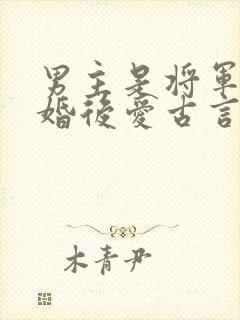 男主是将軍
婚後愛古言
木青尹